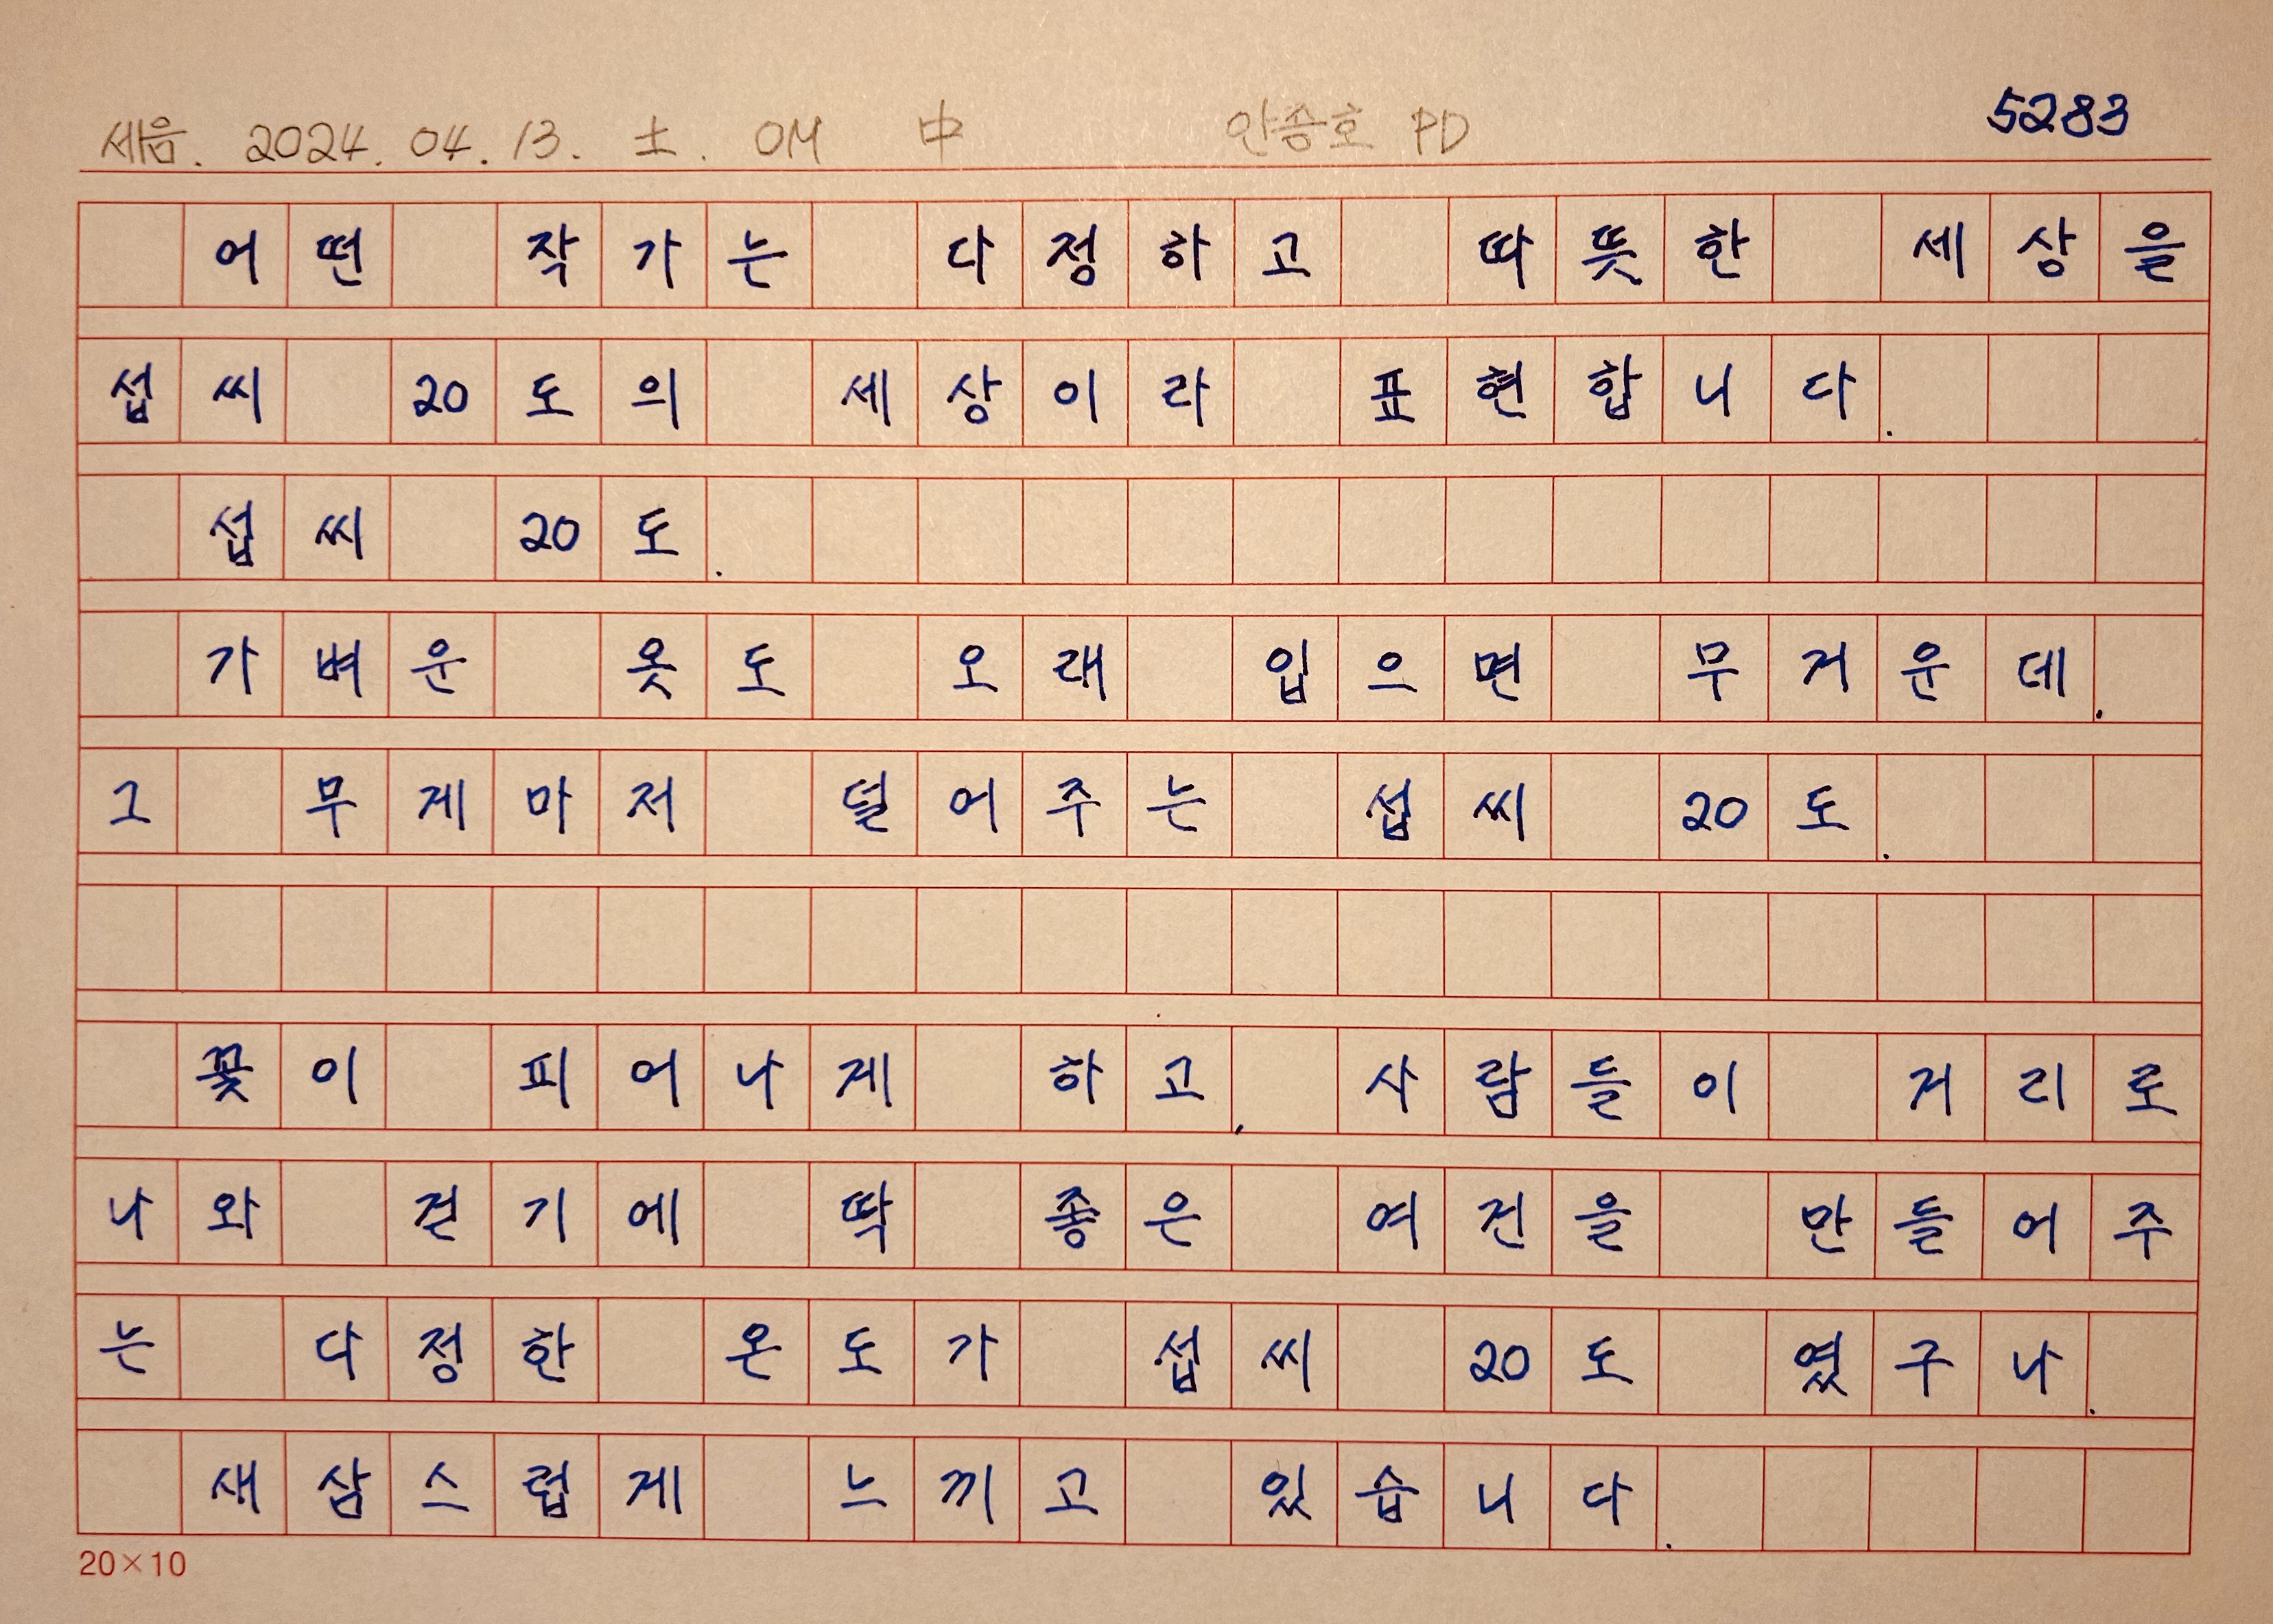 세음. 2024. 04. 13. 土. OM 中 안승호 PD 5283
어떤 작가는 다정하고 따뜻한 세상을
섭씨 20도의 세상이라 표현합니다.
섭씨 20도.
가벼운 옷도 오래 입으면 무거운데.
그 무게마저 덜어주는 섭씨 20도.
꽃이 피어나게 하고, 사람들이 거리로
나와 걷기에 딱 좋은 여건을 만들어주
는 다정한 온도가 섭씨 20도 였구나.
새삼스럽게 느끼고 있습니다.
20×10